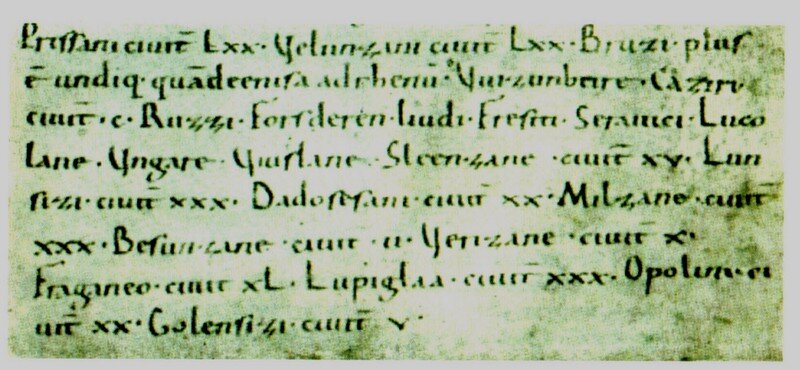 Prissani ciuit̄ Lxx· Velunzani ciuit̄ Lxx· Bruzi· plus·
ē undiq· quā de enisa ad rhenū· Vuizunbeire· Caziri
ciuit̄ ·c· Ruzzi· Forsderen·liudi· Fresiti· Serauici· Luco
lane· Vngare· Vuislane· Sleenzane ·ciuit̄ xv· Lun
sizi· ciuit̄ xxx· Dadosesani· ciuit̄ xx· Milzane· ciuit̄
xxx· Besunzane ·ciuit̄ ·ii· Verizane ·ciuit̄ x·
Fraganeo· ciuit̄ xL· Lupiglaa· ciuit̄ xxx· Opolini· ci
uit̄ xx· Golensizi· ciuit̄ v·